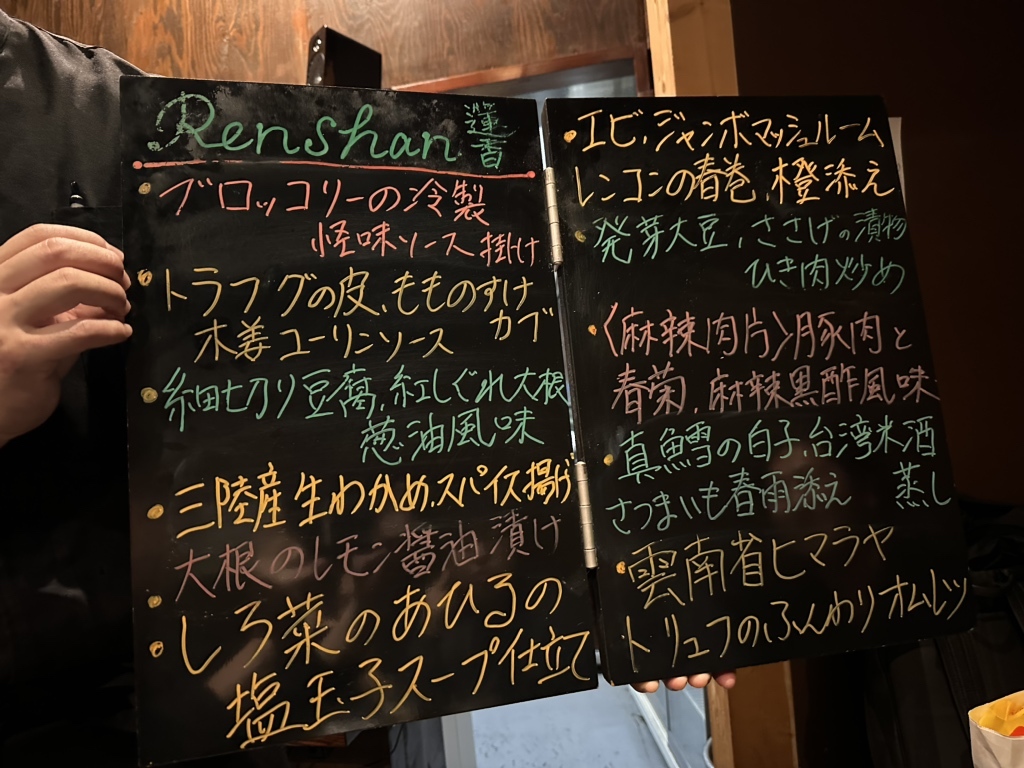 Renshan 蓮香
ブロッコリーの冷製
怪味ソース掛け
トラフグの皮、もものすけ
カブ
木姜ユーリンソース
細切り豆腐、紅しぐれ大根
葱油風味
三陸産生わかめ、スパイス揚げ
大根のレモン醤油漬け
しろ菜のあひるの
塩玉子スープ仕立て
エビ、ジャンボマッシュルーム
レンコンの春巻、橙添え
発芽大豆、ささげの漬物
ひき肉炒め
〈麻辣肉片〉豚肉と
春菊、麻辣黒酢風味
真鱈の白子、台湾米酒
蒸し
さつまいも春雨添え
雲南省ヒマラヤ
トリュフのふんわりオムレツ